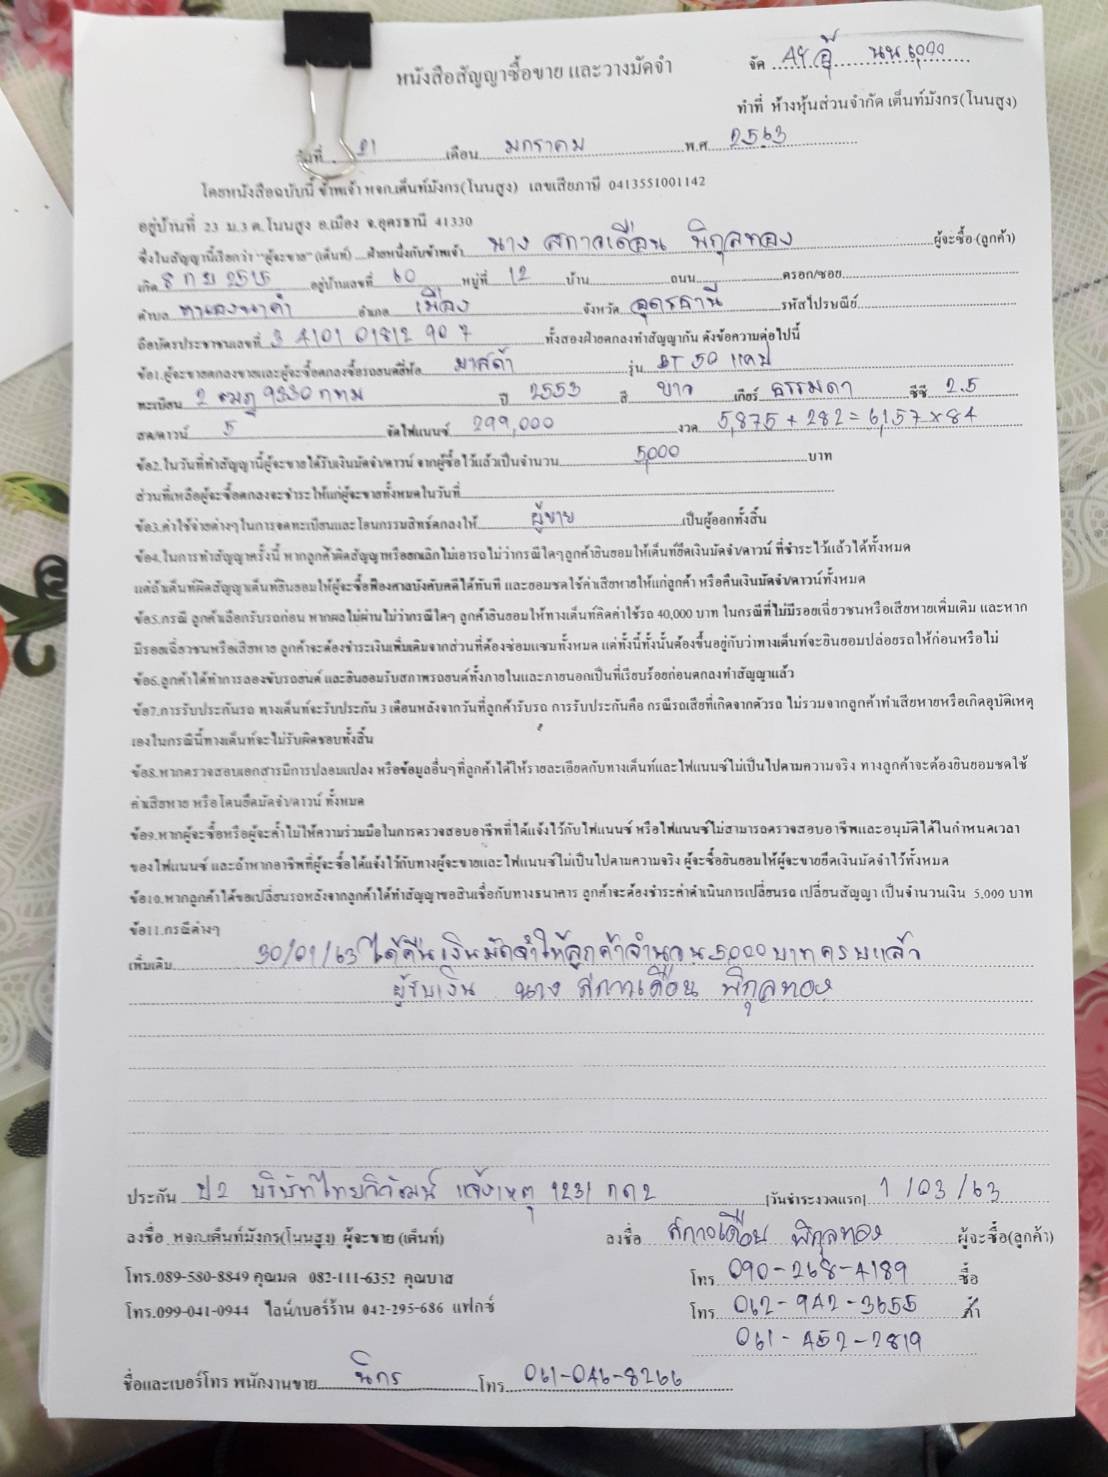 หนังสือสัญญาซื้อขาย และวางมัดจำ
จัด AY อุ๊ นน 6,000
ทำที่ ห้างหุ้นส่วนจำกัด เต็นท์มังกร(โนนสูง)
วันที่ 21 เดือน มกราคม พ.ศ. 2563
โดยหนังสือฉบับนี้ ข้าพเจ้า หจก.เต็นท์มังกร(โนนสูง) เลขเสียภาษี 0413551001142
อยู่บ้านที่ 23 ม.3 ต.โนนสูง อ.เมือง จ.อุดรธานี 41330
ซึ่งในสัญญานี้เรียกว่า "ผู้จะขาย"(เต็นท์) ฝ่ายหนึ่งกับข้าพเจ้า นาง สกาวเดือน พิกุลทอง ผู้จะซื้อ(ลูกค้า)
เกิด 8 กย 2515 อยู่บ้านเลขที่ 60 หมู่ที่ 12 บ้าน ถนน ตรอก/ซอย
ตำบล อำเภอ เมือง จังหวัด อุดรธานี รหัสไปรษณีย์
ถือบัตรประชาชนเลขที่ 3 4101 01812 90 7 ทั้งสองฝ่ายตกลงทำสัญญากัน ดังข้อความต่อไปนี้
ข้อ1.ผู้จะขายตกลงขายและผู้จะซื้อตกลงซื้อรถยนต์ยี่ห้อ มาสด้า รุ่น BT 50 แคป
ทะเบียน 2 ฒฎ 9330 กทม ปี 2553 สี ขาว เกียร์ ธรรมดา ซีซี 2.5
สด/ดาวน์ 5 จัดไฟแนนซ์ 299,000 งวด 5,875 + 282 = 6,157 x 84
ข้อ2.ในวันที่ทำสัญญานี้ผู้จะขายได้รับเงินมัดจำ/ดาวน์ จากผู้ซื้อไว้แล้วเป็นจำนวน 5,000 บาท
ส่วนที่เหลือผู้จะซื้อตกลงจะชำระให้แก่ผู้จะขายทั้งหมดในวันที่
ข้อ3.ค่าใช้จ่ายต่างๆในการจดทะเบียนและโอนกรรมสิทธ์ตกลงให้ ผู้ขาย เป็นผู้ออกทั้งสิ้น
ข้อ4.ในการทำสัญญาครั้งนี้ หากลูกค้าผิดสัญญาหรือยกเลิกไม่เอารถ ไม่ว่ากรณีใดๆลูกค้ายินยอมให้เต็นท์ยึดเงินมัดจำ/ดาวน์ ที่ชำระไว้แล้วได้ทั้งหมด
แต่ถ้าเต็นท์ผิดสัญญาเต็นท์ยินยอมให้ผู้จะซื้อฟ้องศาลบังคับคดีได้ทันที และยอมชดใช้ค่าเสียหายให้แก่ลูกค้า หรือคืนเงินมัดจำ/ดาวน์ทั้งหมด
ข้อ5.กรณี ลูกค้าเลือกรับรถก่อน หากผลไม่ผ่านไม่ว่ากรณีใดๆ ลูกค้ายินยอมให้ทางเต็นท์คิดค่าใช้รถ 40,000 บาท ในกรณีที่ไม่มีรอยเฉี่ยวชนหรือเสียหายเพิ่มเติม และหาก
มีรอยเฉี่ยวชนหรือเสียหาย ลูกค้าจะต้องชำระเงินเพิ่มเติมจากส่วนที่ต้องซ่อมแซมทั้งหมด แต่ทั้งนี้ทั้งนั้นต้องขึ้นอยู่กับว่าทางเต็นท์จะยินยอมปล่อยรถให้ก่อนหรือไม่
ข้อ6.ลูกค้าได้ทำการลองขับรถยนต์ และยินยอมรับสภาพรถยนต์ทั้งภายในและภายนอกเป็นที่เรียบร้อยก่อนตกลงทำสัญญาแล้ว
ข้อ7.การรับประกันรถ ทางเต็นท์จะรับประกัน 3 เดือนหลังจากวันที่ลูกค้ารับรถ การรับประกันคือ กรณีรถเสียที่เกิดจากตัวรถ ไม่รวมจากลูกค้าทำเสียหายหรือเกิดอุบัติเหตุ
เองในกรณีนี้ทางเต็นท์จะไม่รับผิดชอบทั้งสิ้น
ข้อ8.หากตรวจสอบเอกสารมีการปลอมแปลง หรือข้อมูลอื่นๆที่ลูกค้าได้ให้รายละเอียดกับทางเต็นท์และไฟแนนซ์ไม่เป็นไปตามความจริง ทางลูกค้าจะต้องยินยอมชดใช้
ค่าเสียหาย หรือโดนยึดมัดจำ/ดาวน์ ทั้งหมด
ข้อ9.หากผู้จะซื้อหรือผู้จะค้ำไม่ให้ความร่วมมือในการตรวจสอบอาชีพที่ได้แจ้งไว้กับไฟแนนซ์ หรือไฟแนนซ์ไม่สามารถตรวจสอบอาชีพและอนุมัติได้ในกำหนดเวลา
ของไฟแนนซ์ และถ้าหากอาชีพที่ผู้จะซื้อได้แจ้งไว้กับทางผู้จะขายและไฟแนนซ์ไม่เป็นไปตามความจริง ผู้จะซื้อยินยอมให้ผู้จะขายยึดเงินมัดจำไว้ทั้งหมด
ข้อ10.หากลูกค้าได้ขอเปลี่ยนรถหลังจากลูกค้าได้ทำสัญญาขอสินเชื่อกับทางธนาคาร ลูกค้าจะต้องชำระค่าดำเนินการเปลี่ยนรถ เปลี่ยนสัญญา เป็นจำนวนเงิน 5,000 บาท
ข้อ11.กรณีต่างๆ
เพิ่มเติม 30/01/63 ได้คืนเงินมัดจำให้ลูกค้าจำนวน 5,000 บาท ครบแล้ว
ผู้รับเงิน นาง สกาวเดือน พิกุลทอง
ประกัน ป2 บริษัทไทยวิวัฒน์ แจ้งเหตุ 1231 กด 2 [วันชำระงวดแรก] 1/03/63
ลงชื่อ หจก.เต็นท์มังกร(โนนสูง) ผู้จะขาย (เต็นท์) ลงชื่อ สกาวเดือน พิกุลทอง ผู้จะซื้อ(ลูกค้า)
โทร.089-580-8849 คุณมด 082-111-6352 คุณบาส โทร 090-268-4189 ซื้อ
โทร.099-041-0944 ไลน์/เบอร์ร้าน 042-295-686 แฟกซ์ โทร 062-942-3655 ค้ำ
061-452-2819
ชื่อและเบอร์โทร พนักงานขาย นิกร โทร 061-046-8266